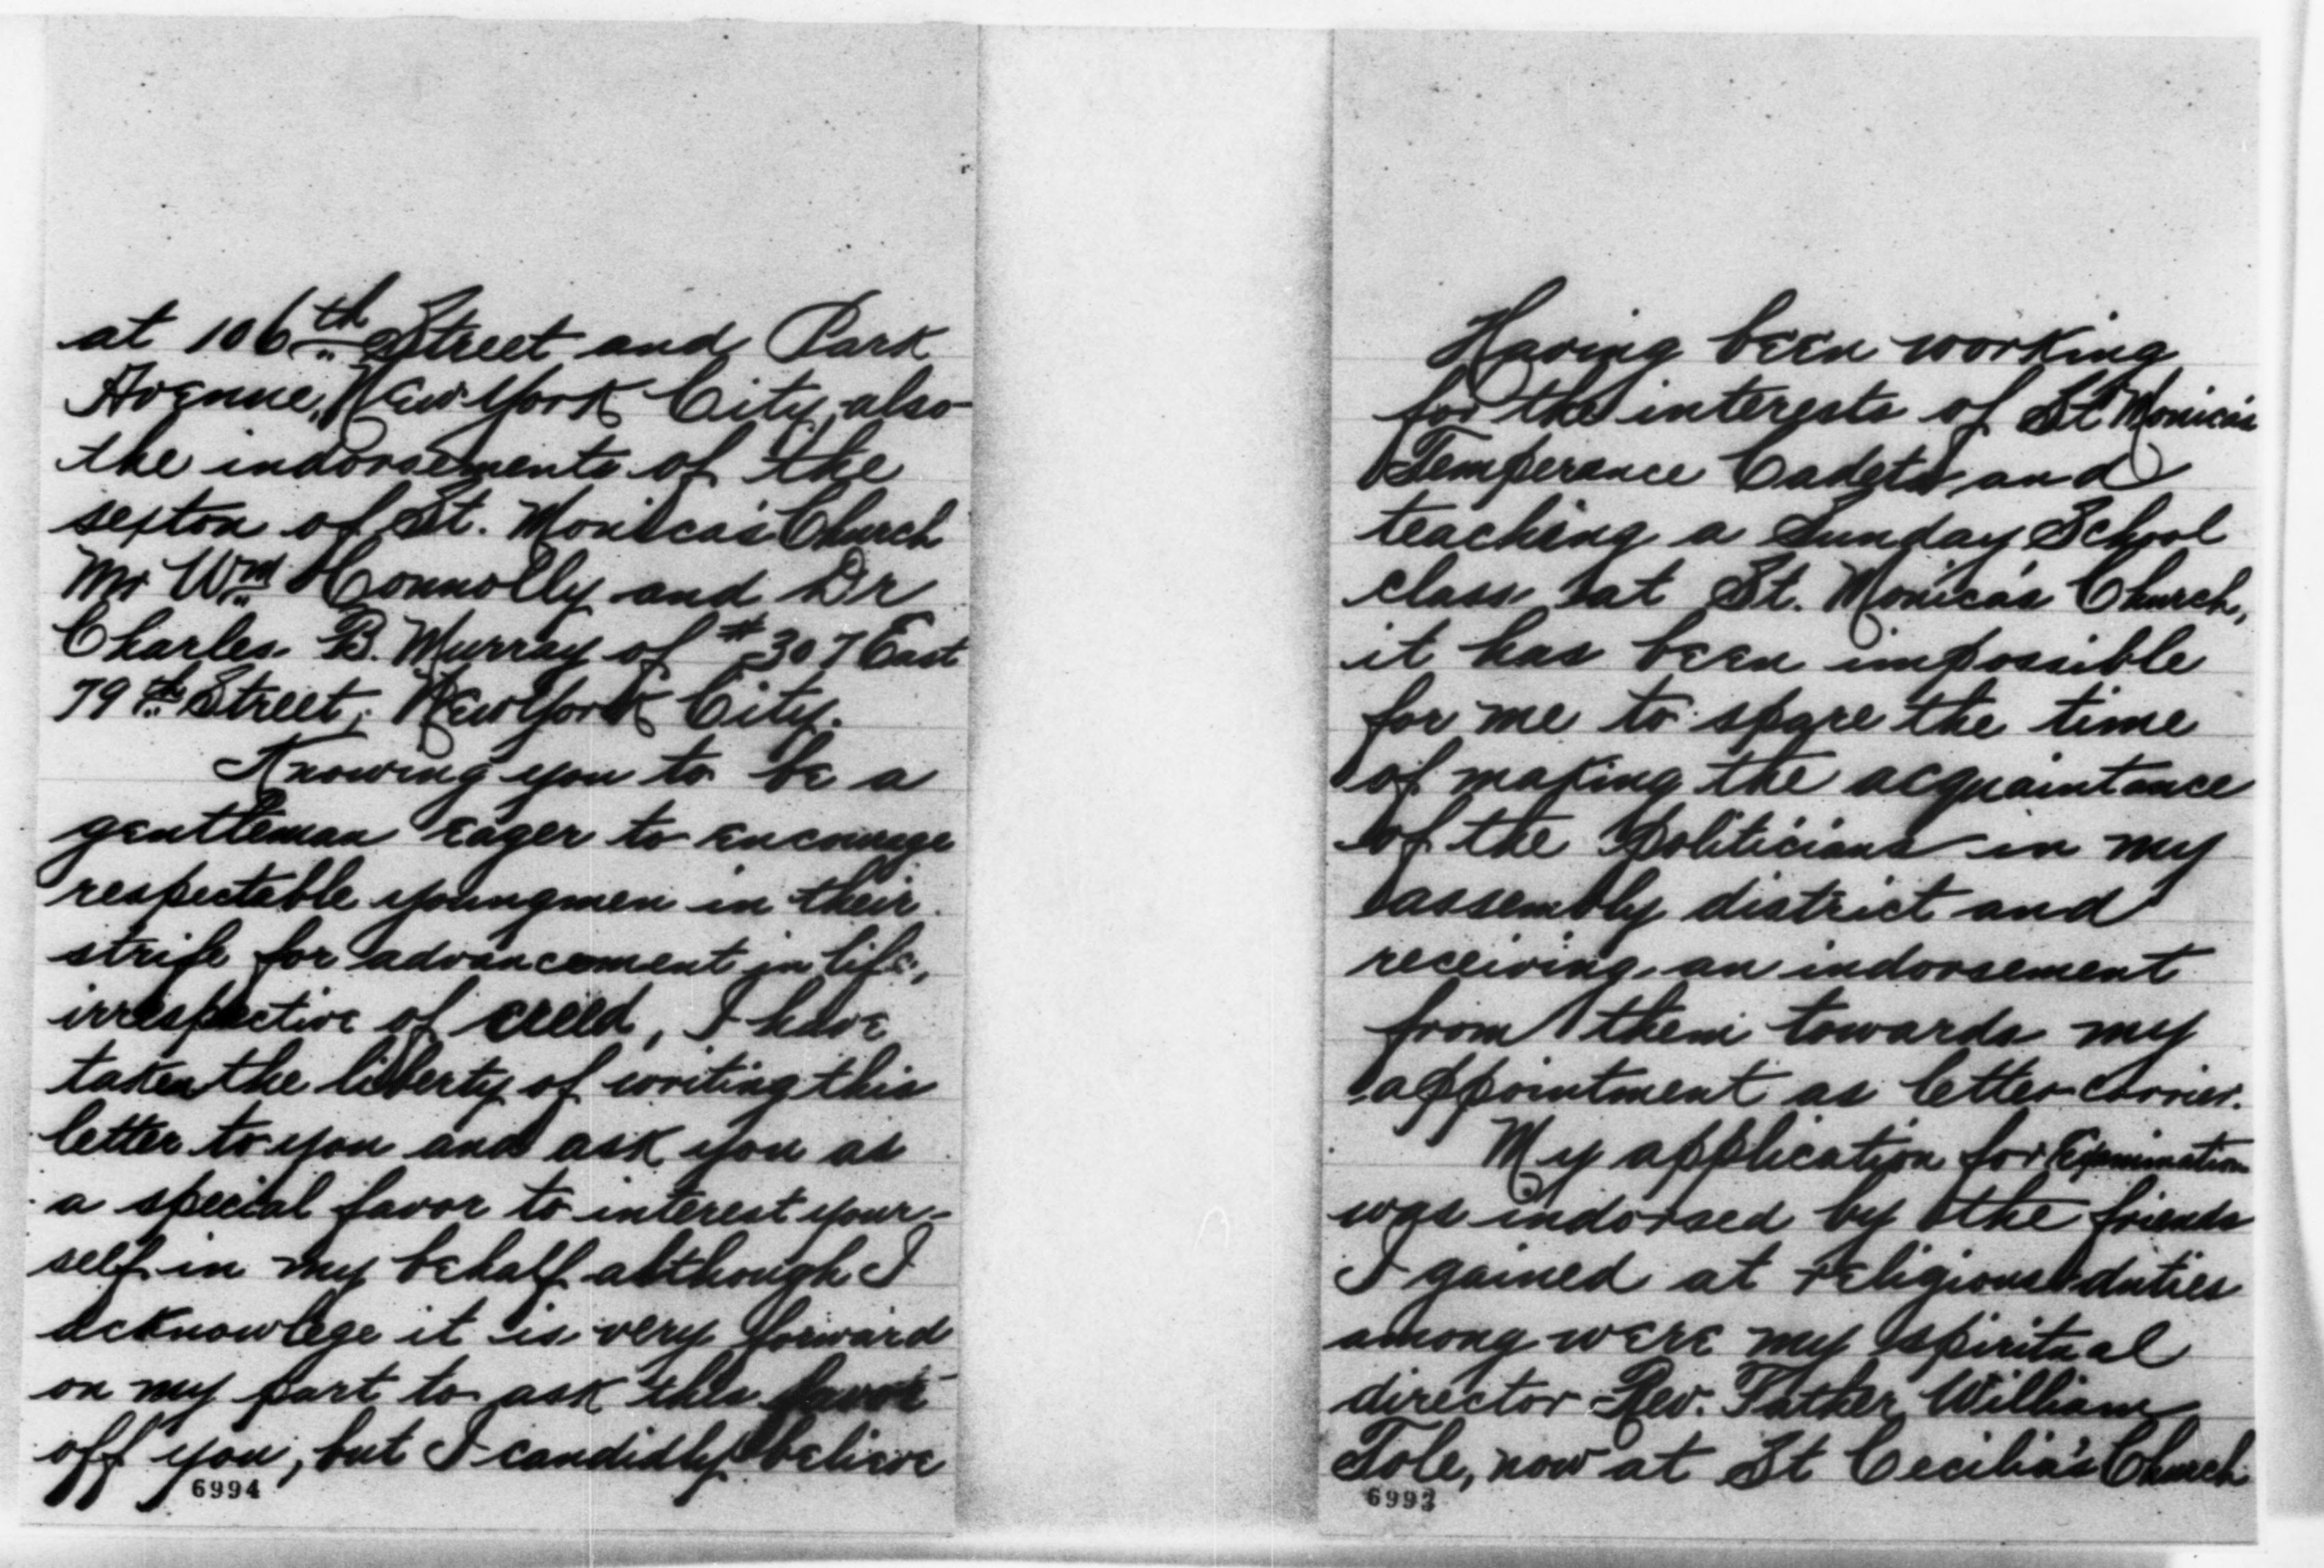 at 106th Street and Park
Avenue, New York City, also
the indorsements of the
sexton of St. Monica's Church
Mr Wm Connolly and Dr
Charles B. Murray of #307 East
79th Street, New York City.
Knowing you to be a
gentleman eager to encourage
respectable youngmen in their
strife for advancement in life,
irrespective of creed, I have
taken the liberty of writing this
letter to you and ask you as
a special favor to interest your-
self in my behalf although I
acknowlege it is very forward
on my part to ask this favor
off you, but I candidly believe
6994
Having been working
for the interests of St Monica's
Temperance Cadets and
teaching a Sunday School
class at St. Monica's Church,
it has been impossible
for me to spare the time
of making the acquaintance
of the politicians in my
assembly district and
receiving an indorsement
from them towards my
appointment as letter-carrier.
My application for Examination
was indorsed by the friends
I gained at religious duties
among were my spiritual
director Rev. Father William
Tole, now at St Cecilia's Church
6993